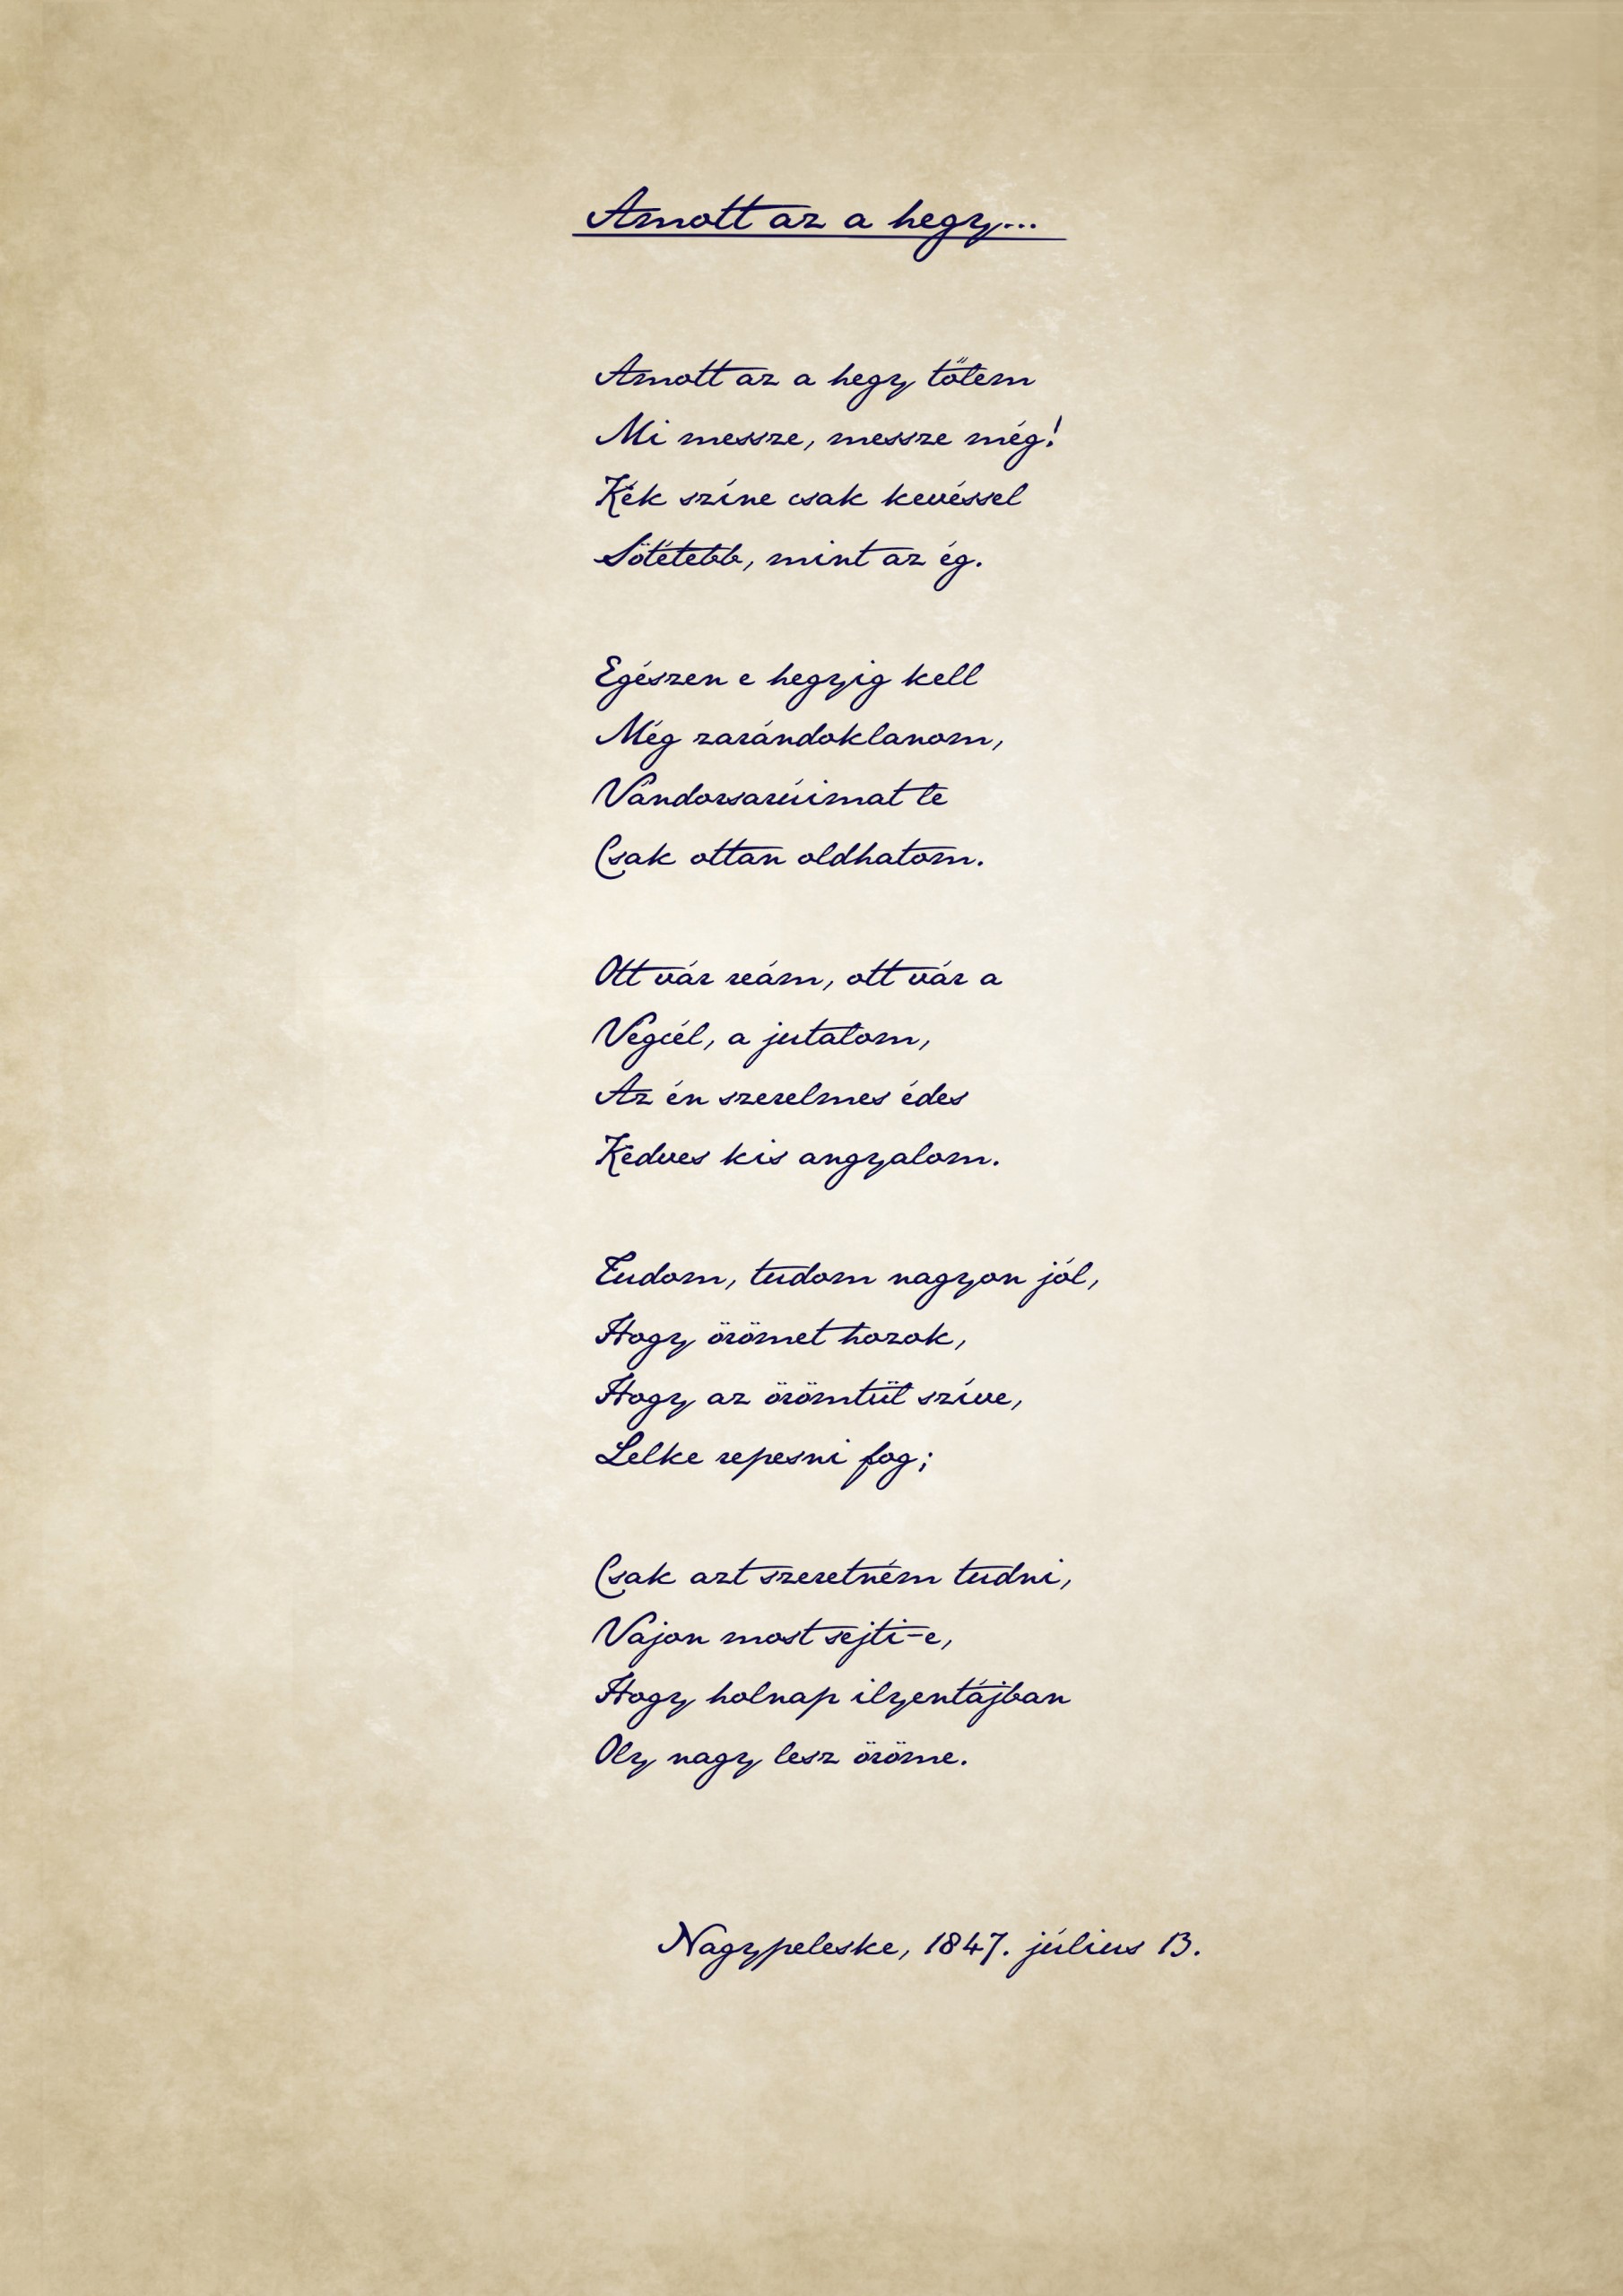 Amott az a hegy...
Amott az a hegy tőlem
Mi messze, messze még!
Kék színe csak kevéssel
Sötétebb, mint az ég.
Egészen e hegyig kell
Még zarándoklanom,
Vándorsarúimat le
Csak ottan oldhatom.
Ott vár reám, ott vár a
Végcél, a jutalom,
Az én szerelmes édes
Kedves kis angyalom.
Tudom, tudom nagyon jól,
Hogy örömet hozok,
Hogy az örömtül szíve,
Lelke repesni fog;
Csak azt szeretném tudni,
Vajon most sejti-e,
Hogy holnap ilyentájban
Oly nagy lesz öröme.
Nagypeleske, 1847. július 13.